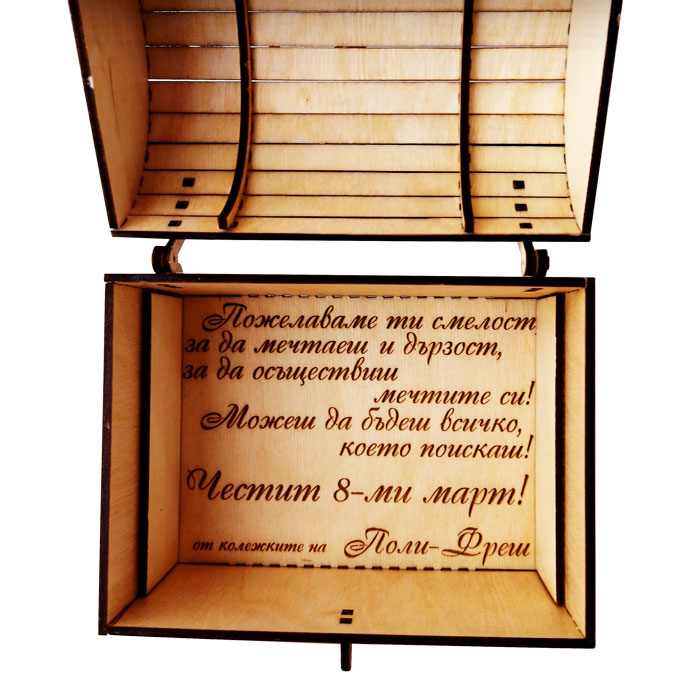 Пожелаваме ти смелост
за да мечтаеш и дързост,
за да осъществиш
мечтите си!
Можеш да бъдеш всичко,
което поискаш!
Честит 8-ми март!
от колежките на Поли-Фреш